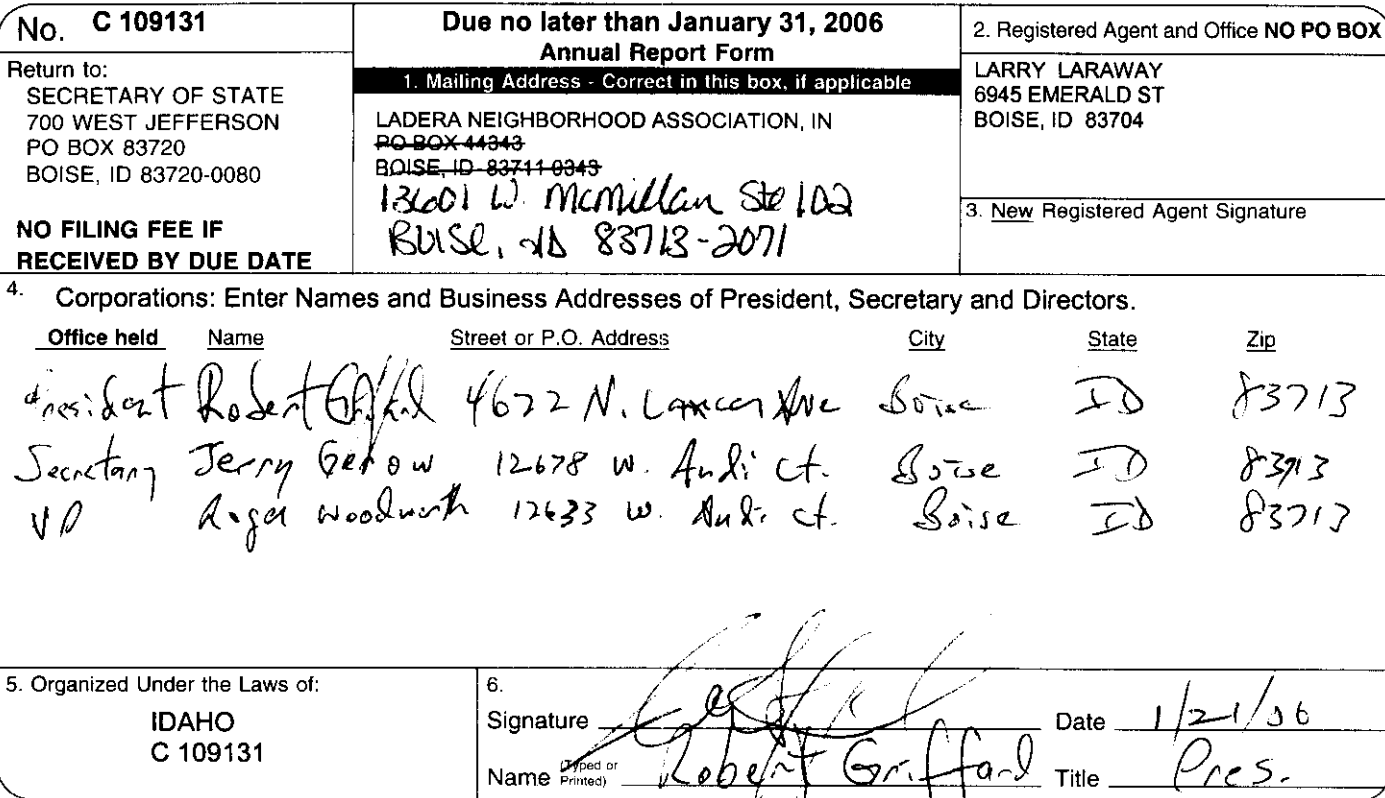 No. C 109131
Return to:
SECRETARY OF STATE
700 WEST JEFFERSON
PO BOX 83720
BOISE, ID 83720-0080
NO FILING FEE IF
RECEIVED BY DUE DATE
Due no later than January 31, 2006
Annual Report Form
1. Mailing Address - Correct in this box, if applicable
LADERA NEIGHBORHOOD ASSOCIATION, IN
PO BOX 44343
BOISE, ID 83711-0343
13601 W. McMillan Ste 102
Boise, ID 83713-2071
2. Registered Agent and Office NO PO BOX
LARRY LARAWAY
6945 EMERALD ST
BOISE, ID 83704
3. New Registered Agent Signature
4. Corporations: Enter Names and Business Addresses of President, Secretary and Directors.
Office held Name Street or P.O. Address City State Zip
President Robert 4622 N. Ave Boise ID 83713
Secretary Jerry Gerow 12678 W. Andi Ct. Boise ID 83713
VP Roger Woodworth 12633 W. Andi Ct. Boise ID 83713
5. Organized Under the Laws of:
IDAHO
C 109131
6.
Signature Date 1/21/06
Name (Typed or Printed) Robert Griffard Title Pres.